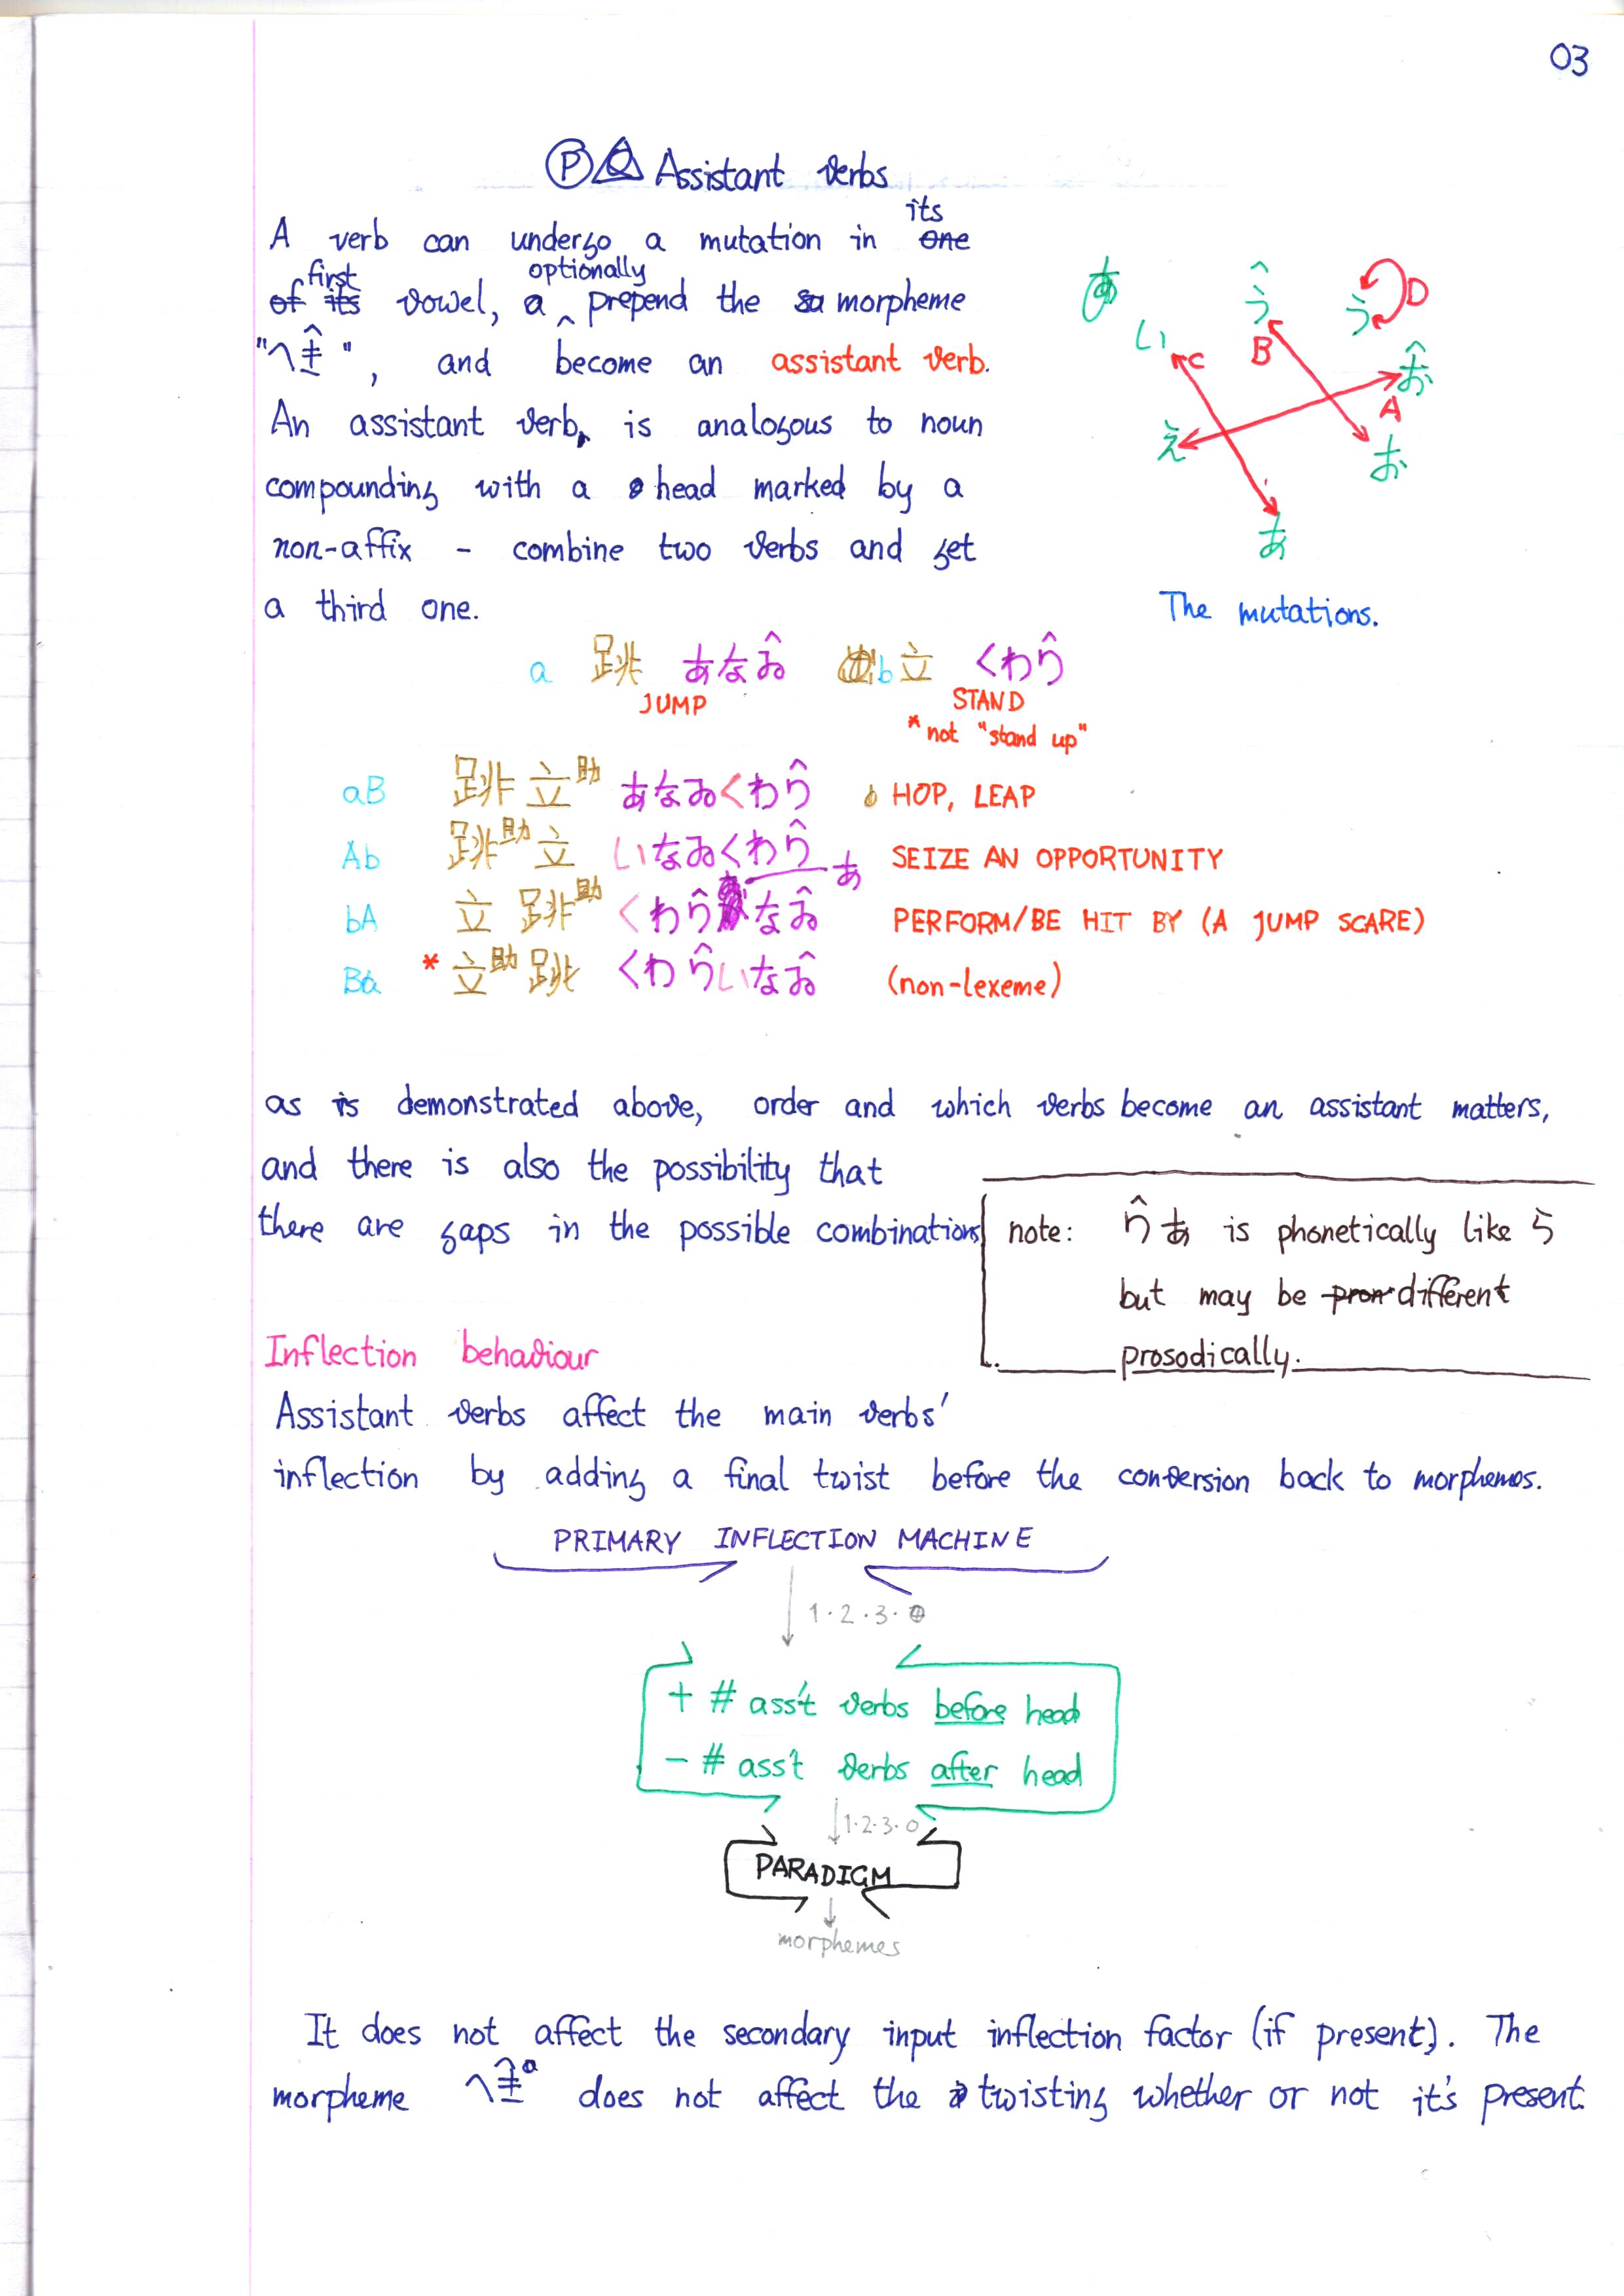 03
Ⓟ Q Assistant verbs
A verb can undergo a mutation in its
first vowel, optionally prepend the morpheme
"へき̂", and become an assistant verb.
An assistant verb, is analogous to noun
compounding with a head marked by a
non-affix - combine two verbs and get
a third one.
い う̂ う D
C B お̂
え A お
あ
The mutations.
a 跳 あなゐ̂ b 立 くわら̂
JUMP STAND
*not "stand up"
aB 跳立助 あなゐくわら̂ HOP, LEAP
Ab 跳助立 いなゐくわら̂ SEIZE AN OPPORTUNITY
bA 立跳助 くわら̂あなゐ̂ PERFORM/BE HIT BY (A JUMP SCARE)
Ba * 立助跳 くわら̂いなゐ̂ (non-lexeme)
as is demonstrated above, order and which verbs become an assistant matters,
and there is also the possibility that
there are gaps in the possible combinations
note: ら̂あ is phonetically like ら
but may be different
prosodically.
Inflection behaviour
Assistant verbs affect the main verbs'
inflection by adding a final twist before the conversion back to morphemes.
PRIMARY INFLECTION MACHINE
1·2·3·0
+ # ass't verbs before head
- # ass't verbs after head
1·2·3·0
PARADIGM
morphemes
It does not affect the secondary input inflection factor (if present). The
morpheme へき̂ does not affect the twisting whether or not it's present.